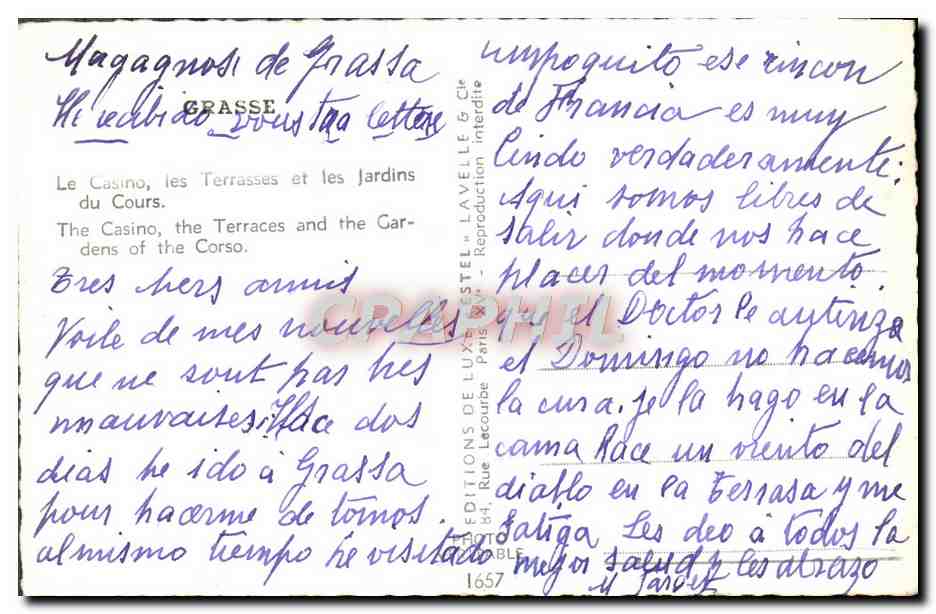 Magagnosi de Grassa
GRASSE
He recibido vous tra lettere
Le Casino, les Terrasses et les Jardins
du Cours.
The Casino, the Terraces and the Gar-
dens of the Corso.
Tres hers amis
Voile de mes nouvelles
que ne sont pas tres
mauvaises. Hace dos
dias he ido à Grassa
pour hacerme de tomos.
al mismo tiempo he visitado
"EDITIONS DE LUXE "ESTEL" LAVELLE & Cie
84, Rue Lecourbe Paris XV - Reproduction interdite
PHOTO
1657
unpoquito ese rincon
de Francia es muy
lindo verdaderamente.
Aqui somos libres de
salir donde nos hace
placer del momento
que el Doctor le autoriza
el Domingo no hacemos
la cura. je la hago en la
cama Race un viento del
diablo en la Terrasa y me
fatiga Les deo à todos la
mejor salud y les abrazo
CRAPHIL